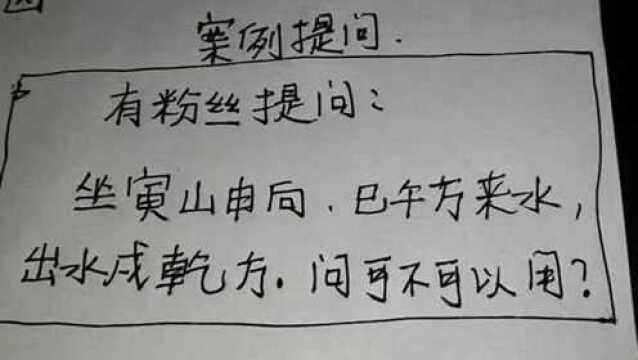 案例提问.
有粉丝提问:
坐寅山申向.巳午方来水,
出水戌乾方.问可不可以用?